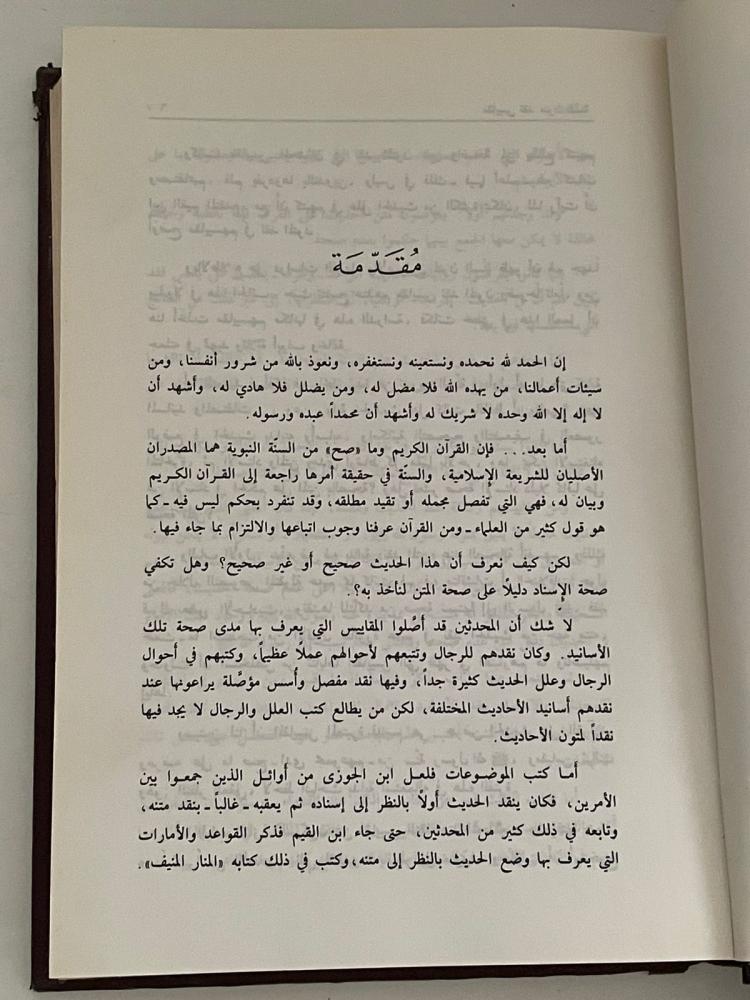 مُقَدّمَة
إن الحمد لله نحمده ونستعينه ونستغفره، ونعوذ بالله من شرور أنفسنا، ومن
سيئات أعمالنا، من يهده الله فلا مضل له، ومن يضلل فلا هادي له، وأشهد أن
لا إله إلا الله وحده لا شريك له وأشهد أن محمداً عبده ورسوله.
أما بعد... فإن القرآن الكريم وما «صح» من السنّة النبوية هما المصدران
الأصليان للشريعة الإسلامية، والسنّة في حقيقة أمرها راجعة إلى القرآن الكريم
وبيان له، فهي التي تفصل مجمله أو تقيد مطلقه، وقد تنفرد بحكم ليس فيه ـ كما
هو قول كثير من العلماء ـ ومن القرآن عرفنا وجوب اتباعها والالتزام بما جاء فيها.
لكن كيف نعرف أن هذا الحديث صحيح أو غير صحيح؟ وهل تكفي
صحة الإسناد دليلًا على صحة المتن لنأخذ به؟.
لا شك أن المحدثين قد أصّلوا المقاييس التي يعرف بها مدى صحة تلك
الأسانيد. وكان نقدهم للرجال وتتبعهم لأحوالهم عملًا عظيماً، وكتبهم في أحوال
الرجال وعلل الحديث كثيرة جداً، وفيها نقد مفصل وأسس مؤصّلة يراعونها عند
نقدهم أسانيد الأحاديث المختلفة، لكن من يطالع كتب العلل والرجال لا يجد فيها
نقداً لمتون الأحاديث.
أما كتب الموضوعات فلعل ابن الجوزى من أوائل الذين جمعوا بين
الأمرين، فكان ينقد الحديث أولًا بالنظر إلى إسناده ثم يعقبه ـ غالباً ـ بنقد متنه،
وتابعه في ذلك كثير من المحدثين، حتى جاء ابن القيم فذكر القواعد والأمارات
التي يعرف بها وضع الحديث بالنظر إلى متنه، وكتب في ذلك كتابه «المنار المنيف».